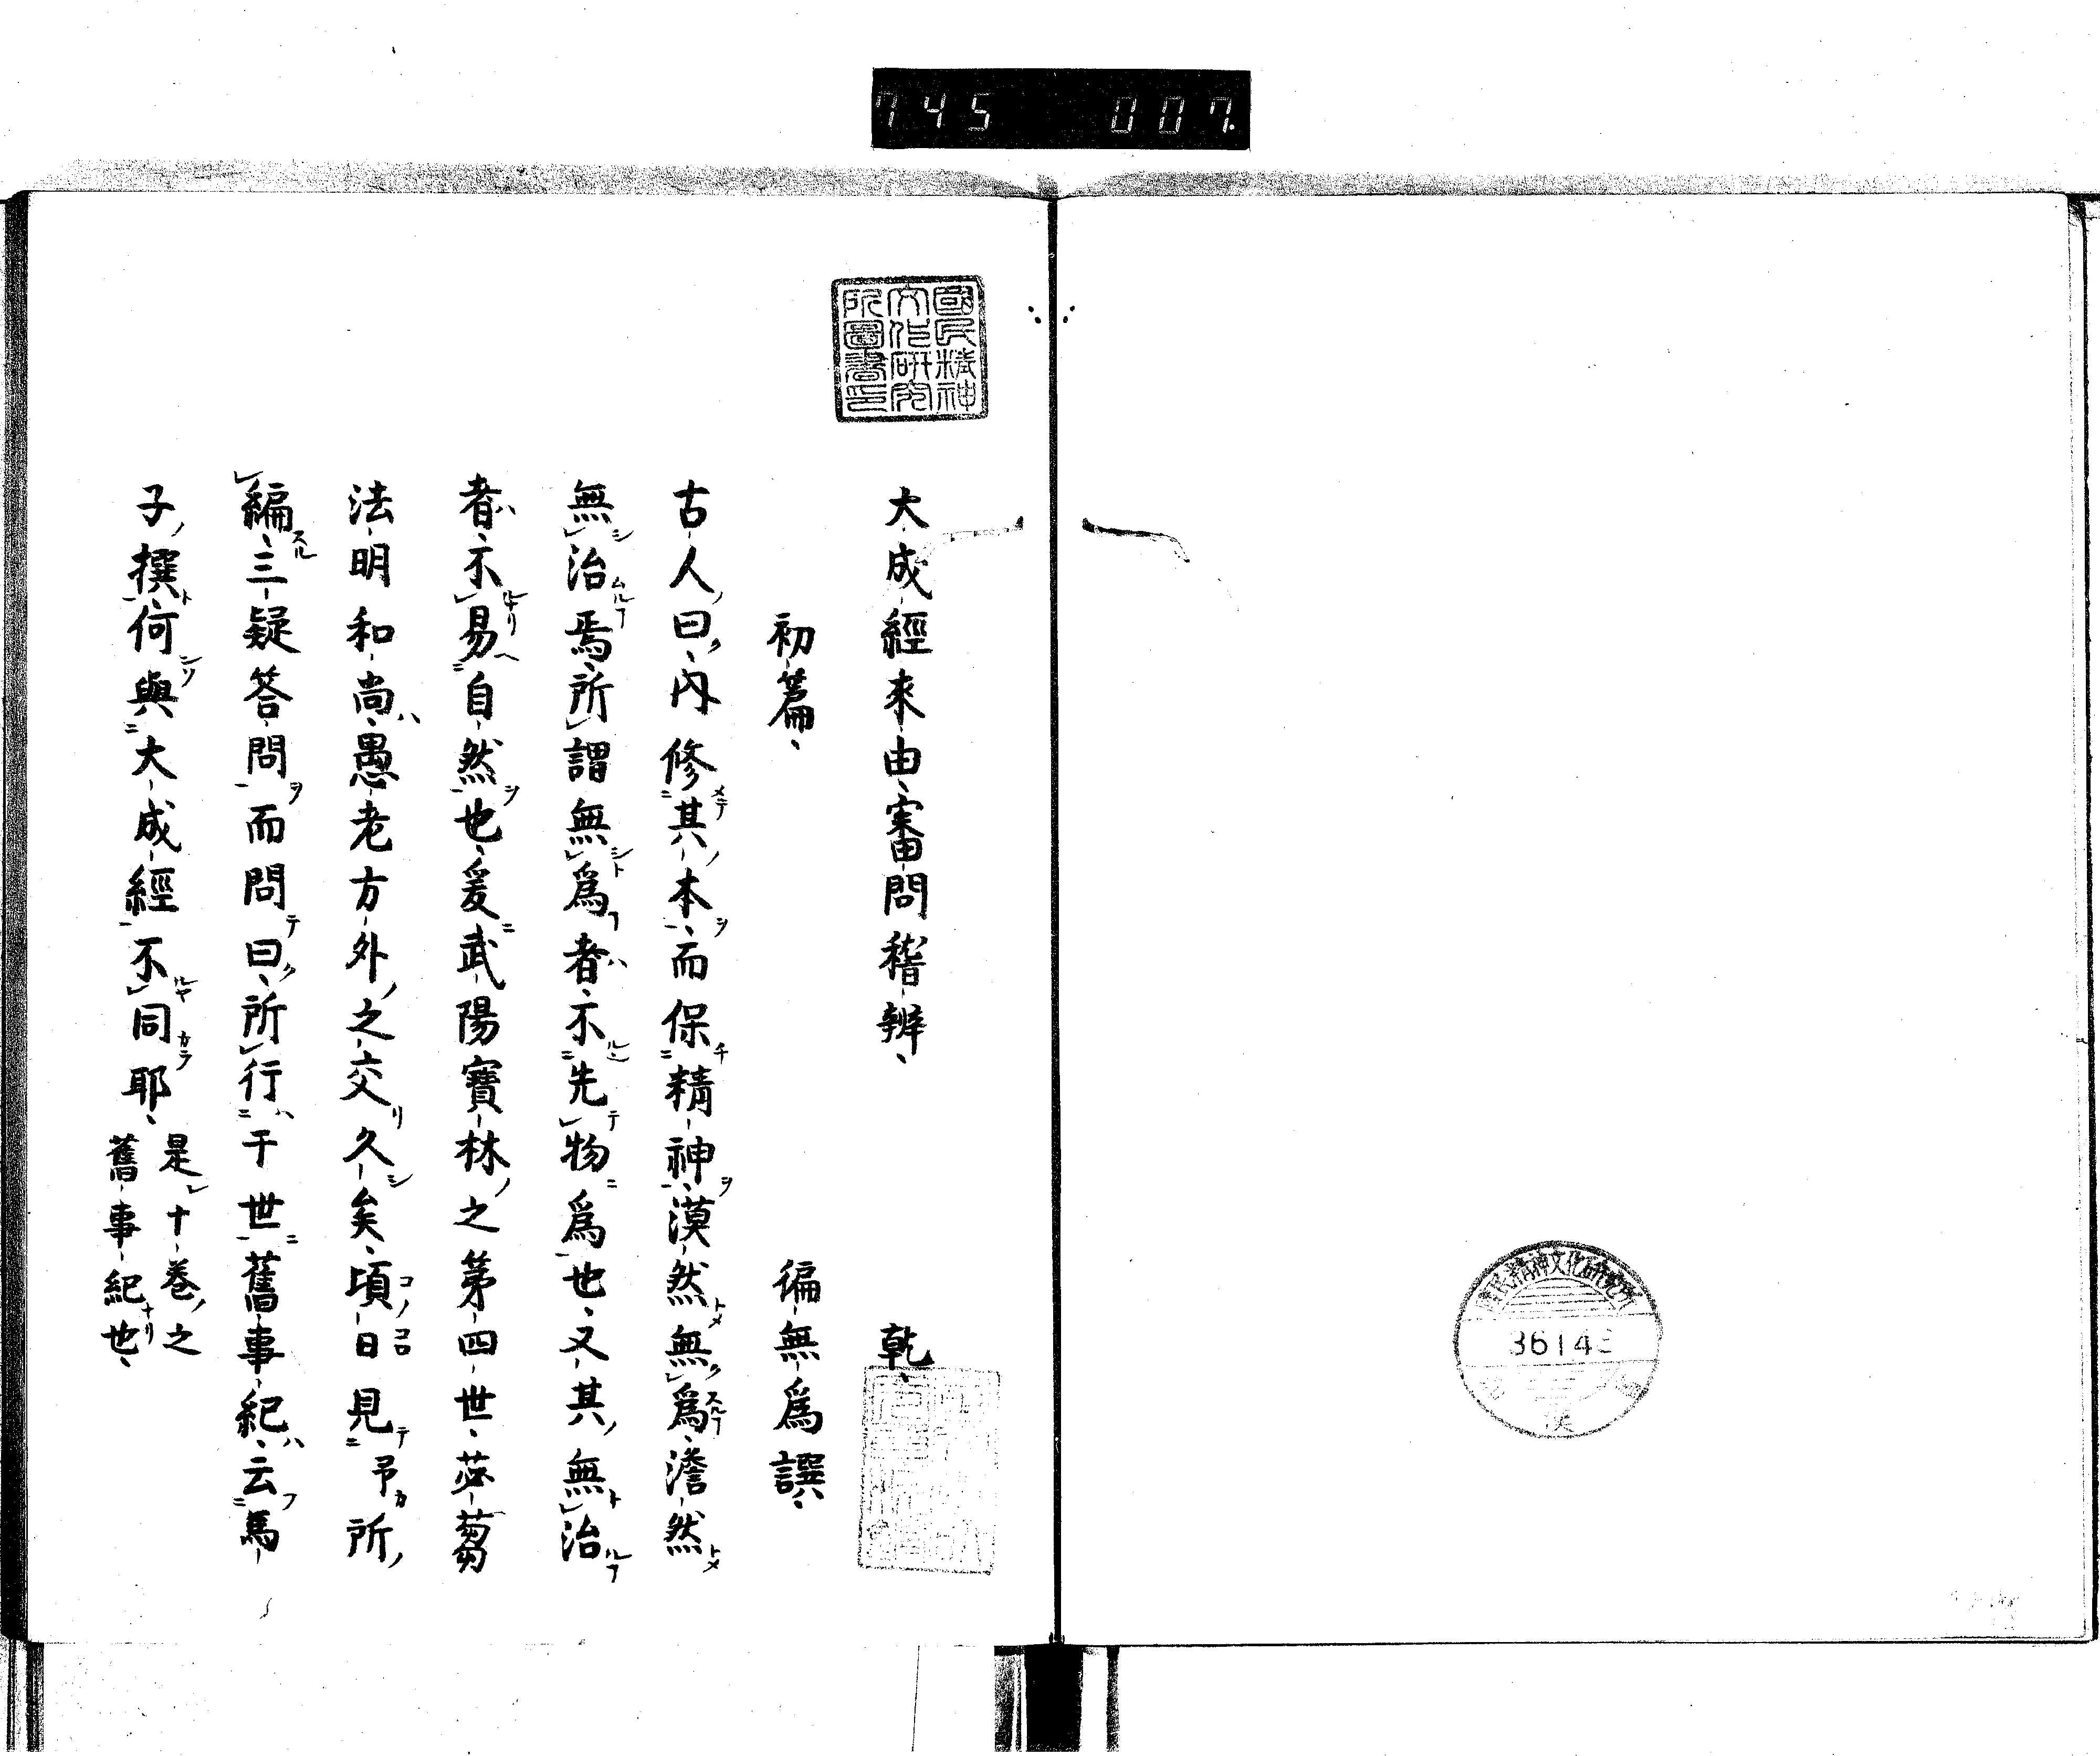 745 007.
國民精神
文化研究
所圖書印
大成經來由審問稽辨 乾
初篇 徧無爲譔
古人曰內修其本而保精神漠然無爲澹然
無治焉所謂無爲者不先物爲也又其無治
者不易自然也爰武陽寶林之第四世苾蒭
法明和尚愚老方外之交久矣頃日見予所
編三疑答問而問曰所行于世舊事紀云馬
子撰何與大成經不同耶 是十卷之
舊事紀也
國民精神文化研究所